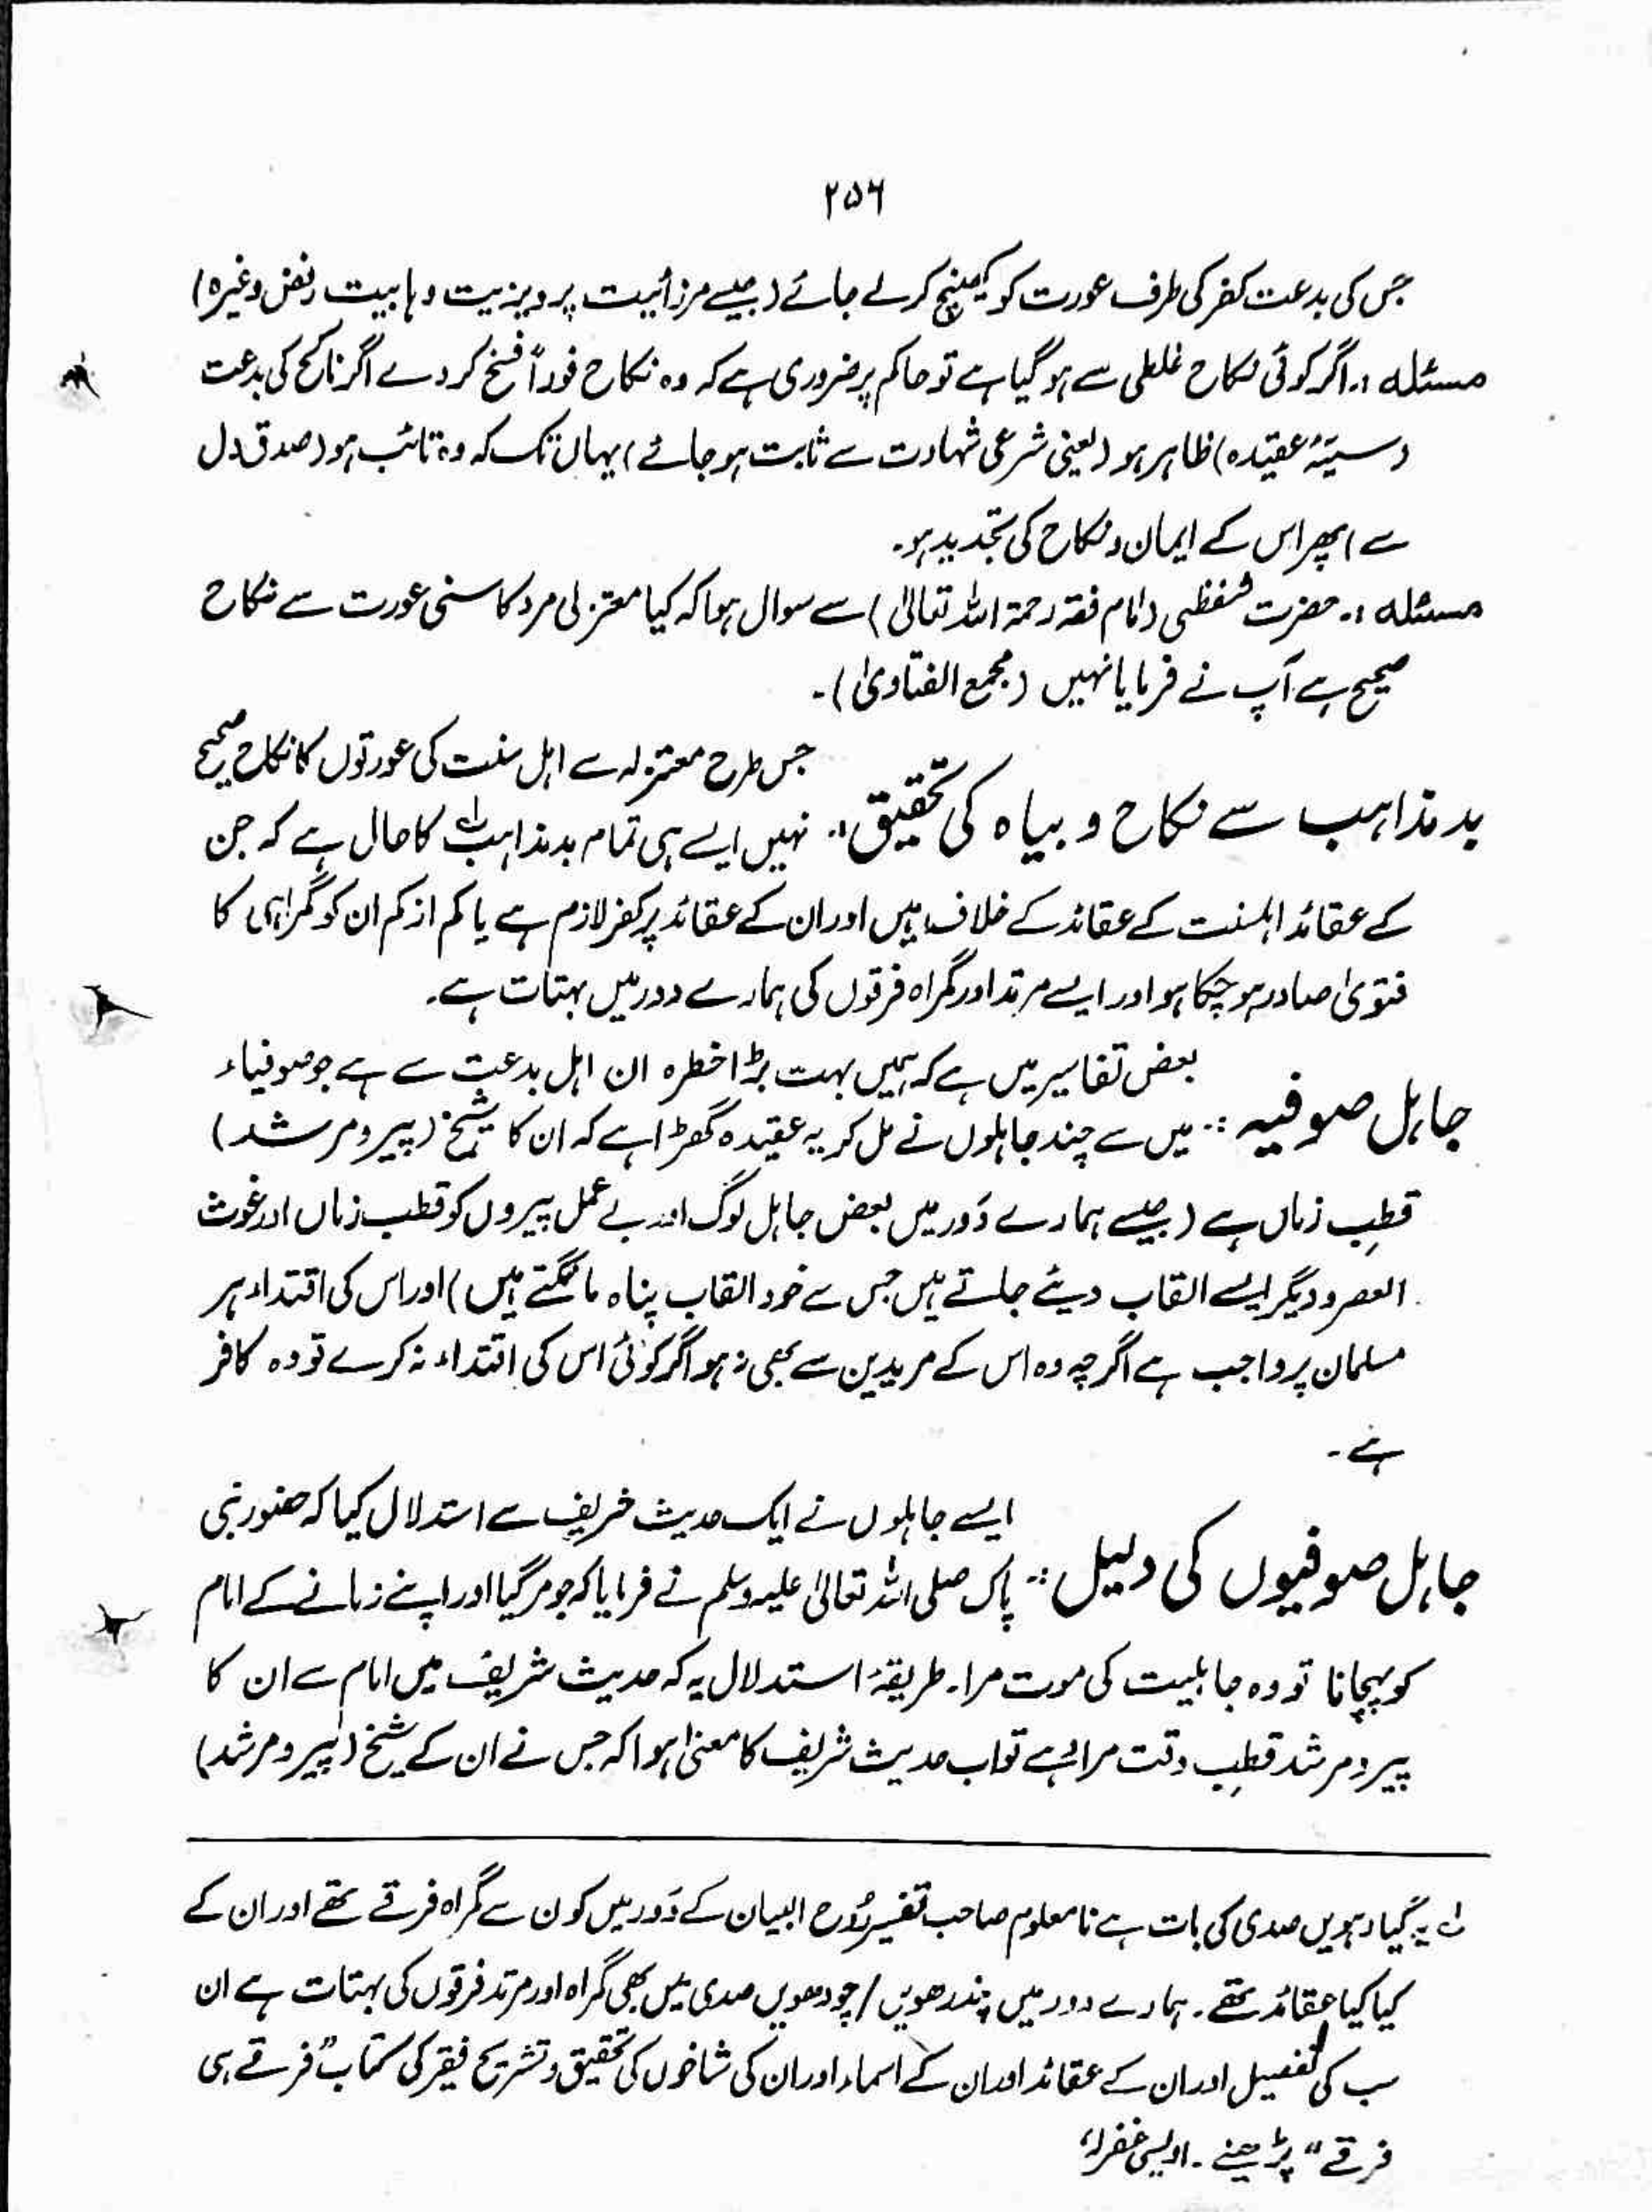 ۲۵۶
جس کی بدعت کفر کی طرف عورت کو کھینچ کر لے جائے (جیسے مرزائیت پرویزیت وہابیت رفض وغیرہ)
مسئلہ :۔ اگر کوئی نکاح غلطی سے ہو گیا ہے تو حاکم پر ضروری ہے کہ وہ نکاح فوراً فسخ کر دے اگر ناکح کی بدعت
(سیئہ عقیدہ) ظاہر ہو (یعنی شرعی شہادت سے ثابت ہو جائے) یہاں تک کہ وہ تائب ہو (صدق دل
سے) پھر اس کے ایمان و نکاح کی تجدید ہو۔
مسئلہ :۔ حضرت شفظبی (امام فقہ رحمۃ اللہ تعالیٰ) سے سوال ہوا کہ کیا معتزلی مرد کا سنی عورت سے نکاح
صحیح ہے آپ نے فرمایا نہیں (مجمع الفتاویٰ)۔
بد مذاہب سے نکاح و بیاہ کی تحقیق :۔ جس طرح معتزلہ سے اہل سنت کی عورتوں کا نکاح صحیح
نہیں ایسے ہی تمام بد مذاہب ؎۱ کا حال ہے کہ جن
کے عقائد اہلسنت کے عقائد کے خلاف ہیں اور ان کے عقائد پر کفر لازم ہے یا کم از کم ان کو گمراہی کا
فتویٰ صادر ہو چکا ہو اور ایسے مرتد اور گمراہ فرقوں کی ہمارے دور میں بہتات ہے۔
جاہل صوفیہ :۔ بعض تفاسیر میں ہے کہ ہمیں بہت بڑا خطرہ ان اہل بدعت سے ہے جو صوفیاء
میں سے چند جاہلوں نے مل کر یہ عقیدہ گھڑا ہے کہ ان کا شیخ (پیر و مرشد)
قطبِ زماں ہے (جیسے ہمارے دَور میں بعض جاہل لوگ اور بے عمل پیروں کو قطب زماں اور غوث
العصر و دیگر ایسے القاب دیئے جاتے ہیں جس سے خود القاب پناہ مانگتے ہیں) اور اس کی اقتداء ہر
مسلمان پر واجب ہے اگرچہ وہ اس کے مریدین سے بھی نہ ہو اگر کوئی اس کی اقتداء نہ کرے تو وہ کافر
ہے۔
جاہل صوفیوں کی دلیل :۔ ایسے جاہلوں نے ایک حدیث شریف سے استدلال کیا کہ حضور نبی
پاک صلی اللہ تعالیٰ علیہ وسلم نے فرمایا کہ جو مر گیا اور اپنے زمانے کے امام
کو پہچانا تو وہ جاہلیت کی موت مرا۔ طریقۂ استدلال یہ کہ حدیث شریف میں امام سے ان کا
پیر و مرشد قطبِ وقت مراد ہے تو اب حدیث شریف کا معنیٰ ہوا کہ جس نے ان کے شیخ (پیر و مرشد)
؎۱ یہ گیارہویں صدی کی بات ہے نا معلوم صاحب تفسیر رُوح البیان کے دَور میں کون سے گمراہ فرقے تھے اور ان کے
کیا کیا عقائد تھے۔ ہمارے دور میں پندرھویں / چودھویں صدی میں بھی گمراہ اور مرتد فرقوں کی بہتات ہے ان
سب کی تفصیل اور ان کے عقائد اور ان کے اسماء اور ان کی شاخوں کی تحقیق و تشریح فقیر کی کتاب "فرقے ہی
فرقے" پڑھیئے۔ اویسی غفرلہٗ